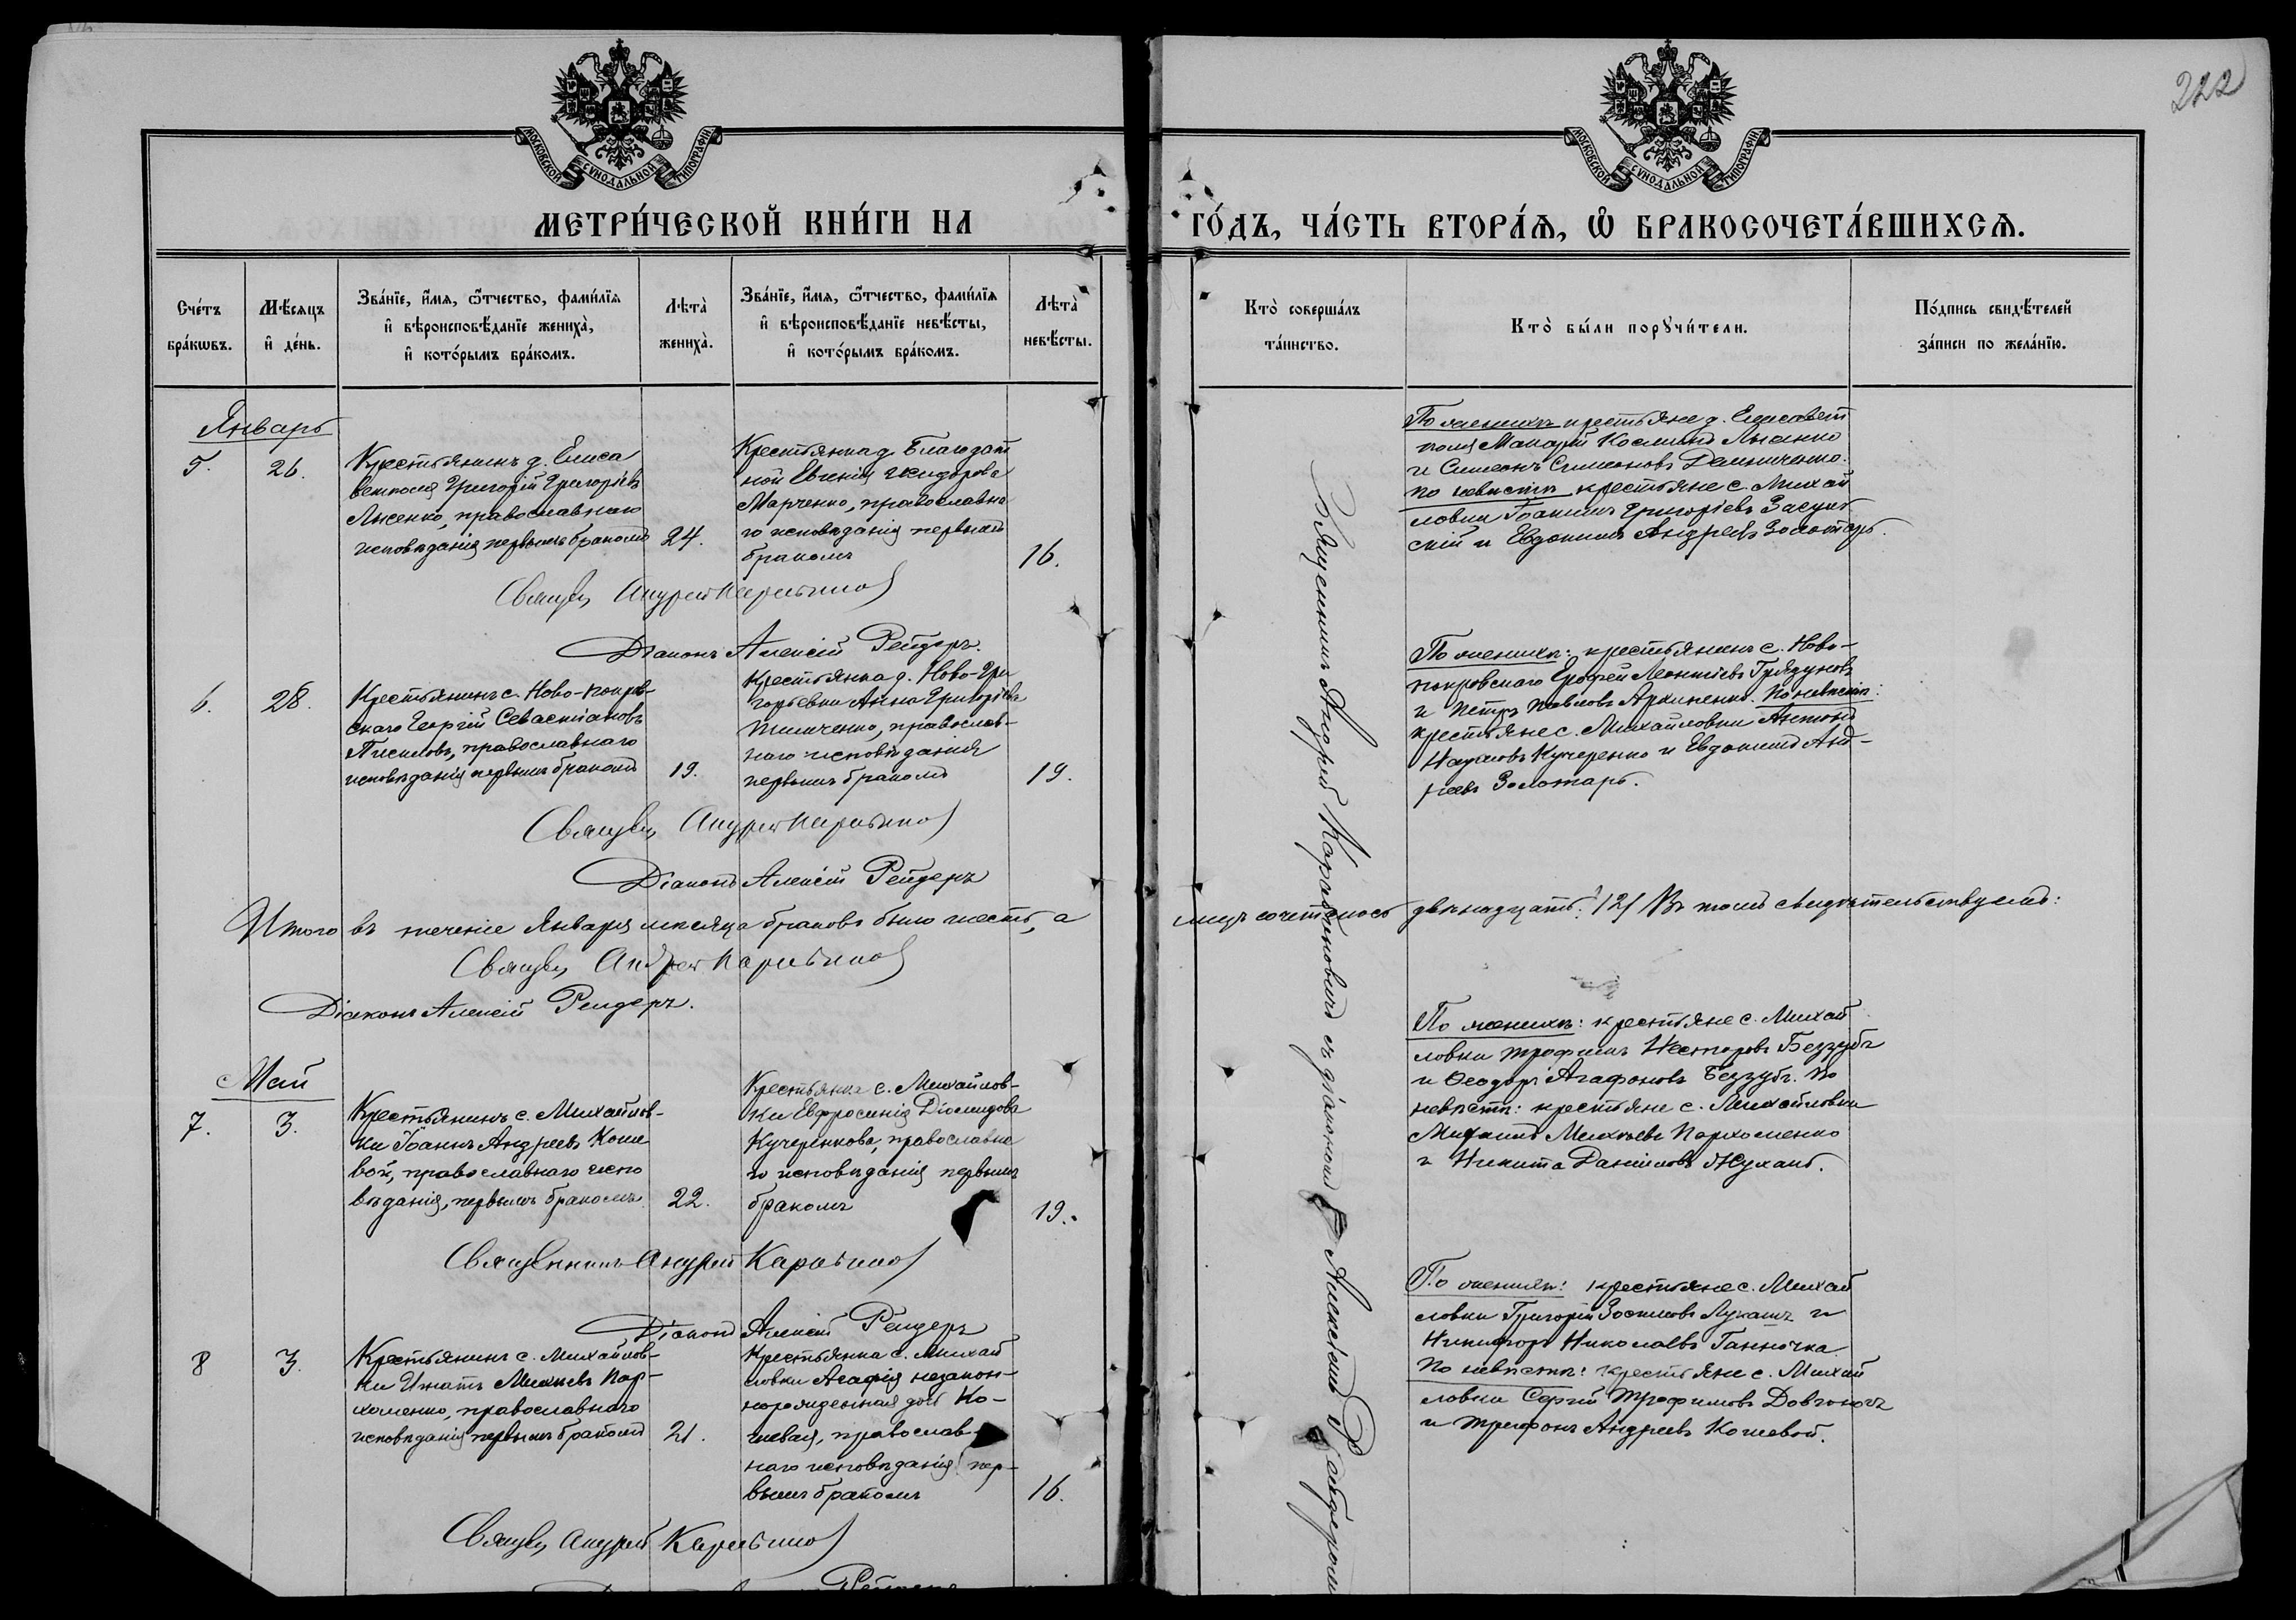 222
МОСКОВСКОЙ СУНОДАЛЬНОЙ ТИПОГРАФІИ
МОСКОВСКОЙ СУНОДАЛЬНОЙ ТИПОГРАФІИ
МЕТРИ́ЧЕСКОЙ КНИ́ГИ НА
ГО́ДЪ, ЧА́СТЬ ВТОРА́Ѧ, Ѡ БРАКОСОЧЕТА́ВШИХСѦ.
Сче́тъ
бра́кѡвъ.
Мѣ́сяцъ
и҆ де́нь.
Зва́нїе, и҆́мѧ, ѻ҆́тчество, фами́лїѧ
и҆ вѣроисповѣ́данїе жениха̀,
и҆ кото́рымъ бра́комъ.
Лѣта̀
жениха̀.
Зва́нїе, и҆́мѧ, ѻ҆́тчество, фами́лїѧ
и҆ вѣроисповѣ́данїе невѣ́сты,
и҆ кото́рымъ бра́комъ.
Лѣта̀
невѣ́сты.
Кто̀ соверша́лъ
та́инство.
Кто̀ бы́ли порꙋчи́тели.
По́дпись свидѣ́телей
за́писи по жела́нїю.
Январь
5.
26.
Крестьянинъ д. Елиса
ветполя Григорій Григоріевъ
Лысенко, православнаго
исповѣданія первымъ бракомъ
24.
Крестьянка д. Благодат
ной Евгенія Исидорова
Марченко, православна
го исповѣданія первымъ
бракомъ
16.
По женихѣ крестьяне д. Елисавет
поля Макарій Косминъ Лысенко
и Симеонъ Симеоновъ Демниченко.
по невѣстѣ крестьяне с. Михай
ловки Іоакимъ Григорьевъ
и Евдокимъ Андреевъ Золотарь.
Священ Андрей
Діаконъ Алексій Рейдеръ.
6.
28.
Крестьянинъ с. Ново-покров-
скаго Георгій Севастіановъ
православнаго
исповѣданія первымъ бракомъ
19.
Крестьянка д. Ново-Гри
горьевки Анна Григорьева
Тимченко, православ-
наго исповѣданія
первымъ бракомъ
19.
По женихѣ: крестьянинъ с. Ново-
покровскаго Ерофей Леонтіевъ Грязуновъ
и Петръ Павловъ Архипенко. По невѣстѣ:
крестьяне с. Михайловки Антонъ
Наумовъ Кучеренко и Евдокимъ Анд-
реевъ Золотарь.
Священ Андрей
Діаконъ Алексій Рейдеръ
Итого въ теченіе Января мѣсяца браковъ было шесть, а
лицъ сочеталось двѣнадцать: /12/ Въ томъ свидѣтельствуемъ:
Священ Андрей
Діаконъ Алексій Рейдеръ.
Май
7.
3.
Крестьянинъ с. Михайлов-
ки Іоаннъ Андреевъ Коше
вой, православнаго испо
вѣданія, первымъ бракомъ
22.
Крестьянка с. Михайлов-
ки Евфросинія Діомидова
Кучеренкова, православна
го исповѣданія первымъ
бракомъ
19.
По женихѣ: крестьяне с. Михай
ловки Трофимъ Несторовъ Беззубъ
и Ѳеодоръ Агафоновъ Беззубъ. По
невѣстѣ: крестьяне с. Михайловки
Михѣевъ Пархоменко
и Никита Даніиловъ
Священникъ Андрей
Діаконъ Алексій Рейдеръ
8
3.
Крестьянинъ с. Михайлов-
ки Игнатъ Михѣевъ Пар-
хоменко, православнаго
исповѣданія первымъ бракомъ
21.
Крестьянка с. Михай
ловки Агафія незакон-
норожденная дочь Ко-
шевая, православ-
наго исповѣданія пер-
вымъ бракомъ
16.
По женихѣ: крестьяне с. Михай
ловки Григорій Зосимовъ Луханъ и
Никифоръ Николаевъ Ганночка
По невѣстѣ: крестьяне с. Михай
ловки Сергій Трофимовъ
и Трифонъ Андреевъ Кошевой.
Священ Андрей
Священникъ Андрей съ діакономъ Алексіемъ Рейдеромъ